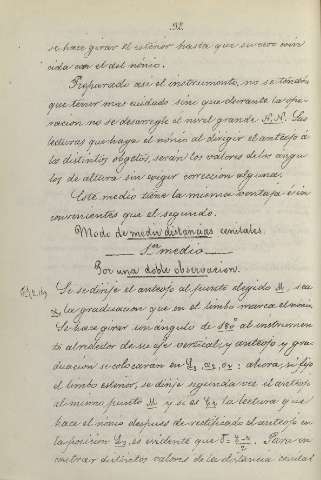 32.
se hace girar el esterior hasta que su cero coin
cida con el del nónio.
Preparado así el instrumento, no se tendrá
que tener mas cuidado sino que durante la ope-
racion no se desarregle el nivel grande N.N. Las
lecturas que haga el nónio al dirigir el anteojo á
los distintos objetos, serán los valores de los angu
los de altura sin exigir correccion alguna.
Este medio tiene la misma ventaja é in
convenientes que el segundo.
Modo de medir distancias cenitales.
1er medio
Por una doble observacion.
Si se dirije el anteojo al punto elegido M, sea
la graduacion que en el limbo marca el nónio.
Se hace girar un ángulo de 180° al instrumen
to alrededor de su eje vertical, y anteojo y gra-
duacion se colocarán en
ahora, si fijo
el limbo esterior, se dirije segunda vez el anteojo
al mismo punto M y si es
la lectura que
hace el nónio despues de rectificado el anteojo en
la posicion
es evidente que
Para en
contrar distintos valores de la distancia cenital